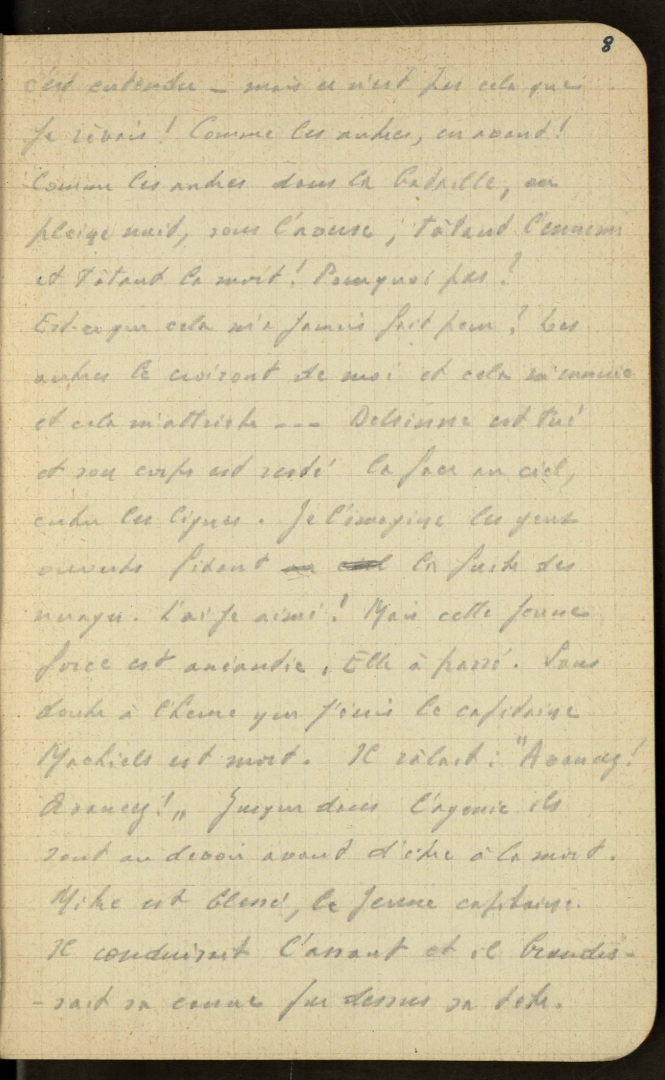 8
c'est entendu — mais ce n'est pas cela que
je rêvais ! Comme les autres, en avant !
Comme les autres dans la bataille, en
pleine nuit, sous l'averse ; tâtant l'ennemi
et tâtant la mort ! Pourquoi pas ?
Est-ce que cela m'a jamais fait peur ? Les
autres le croiront de moi et cela m'ennuie
et cela m'attriste --- Delsinne est tué
et son corps est resté la face au ciel,
entre les lignes. Je l'imagine les yeux
ouverts fixant la fuite des
nuages. L'ai-je aimé ! Mais cette jeune
force est anéantie. Elle à passé. Sans
doute à l'heure que j'écris le capitaine
Machiels est mort. Il râlait : "Avancez !
Avancez !„ Jusque dans l'agonie ils
sont au devoir avant d'être à la mort.
Mitre est blessé, le jeune capitaine.
Il conduisait l'assaut et il brandis-
-sait sa canne par dessus sa tête.